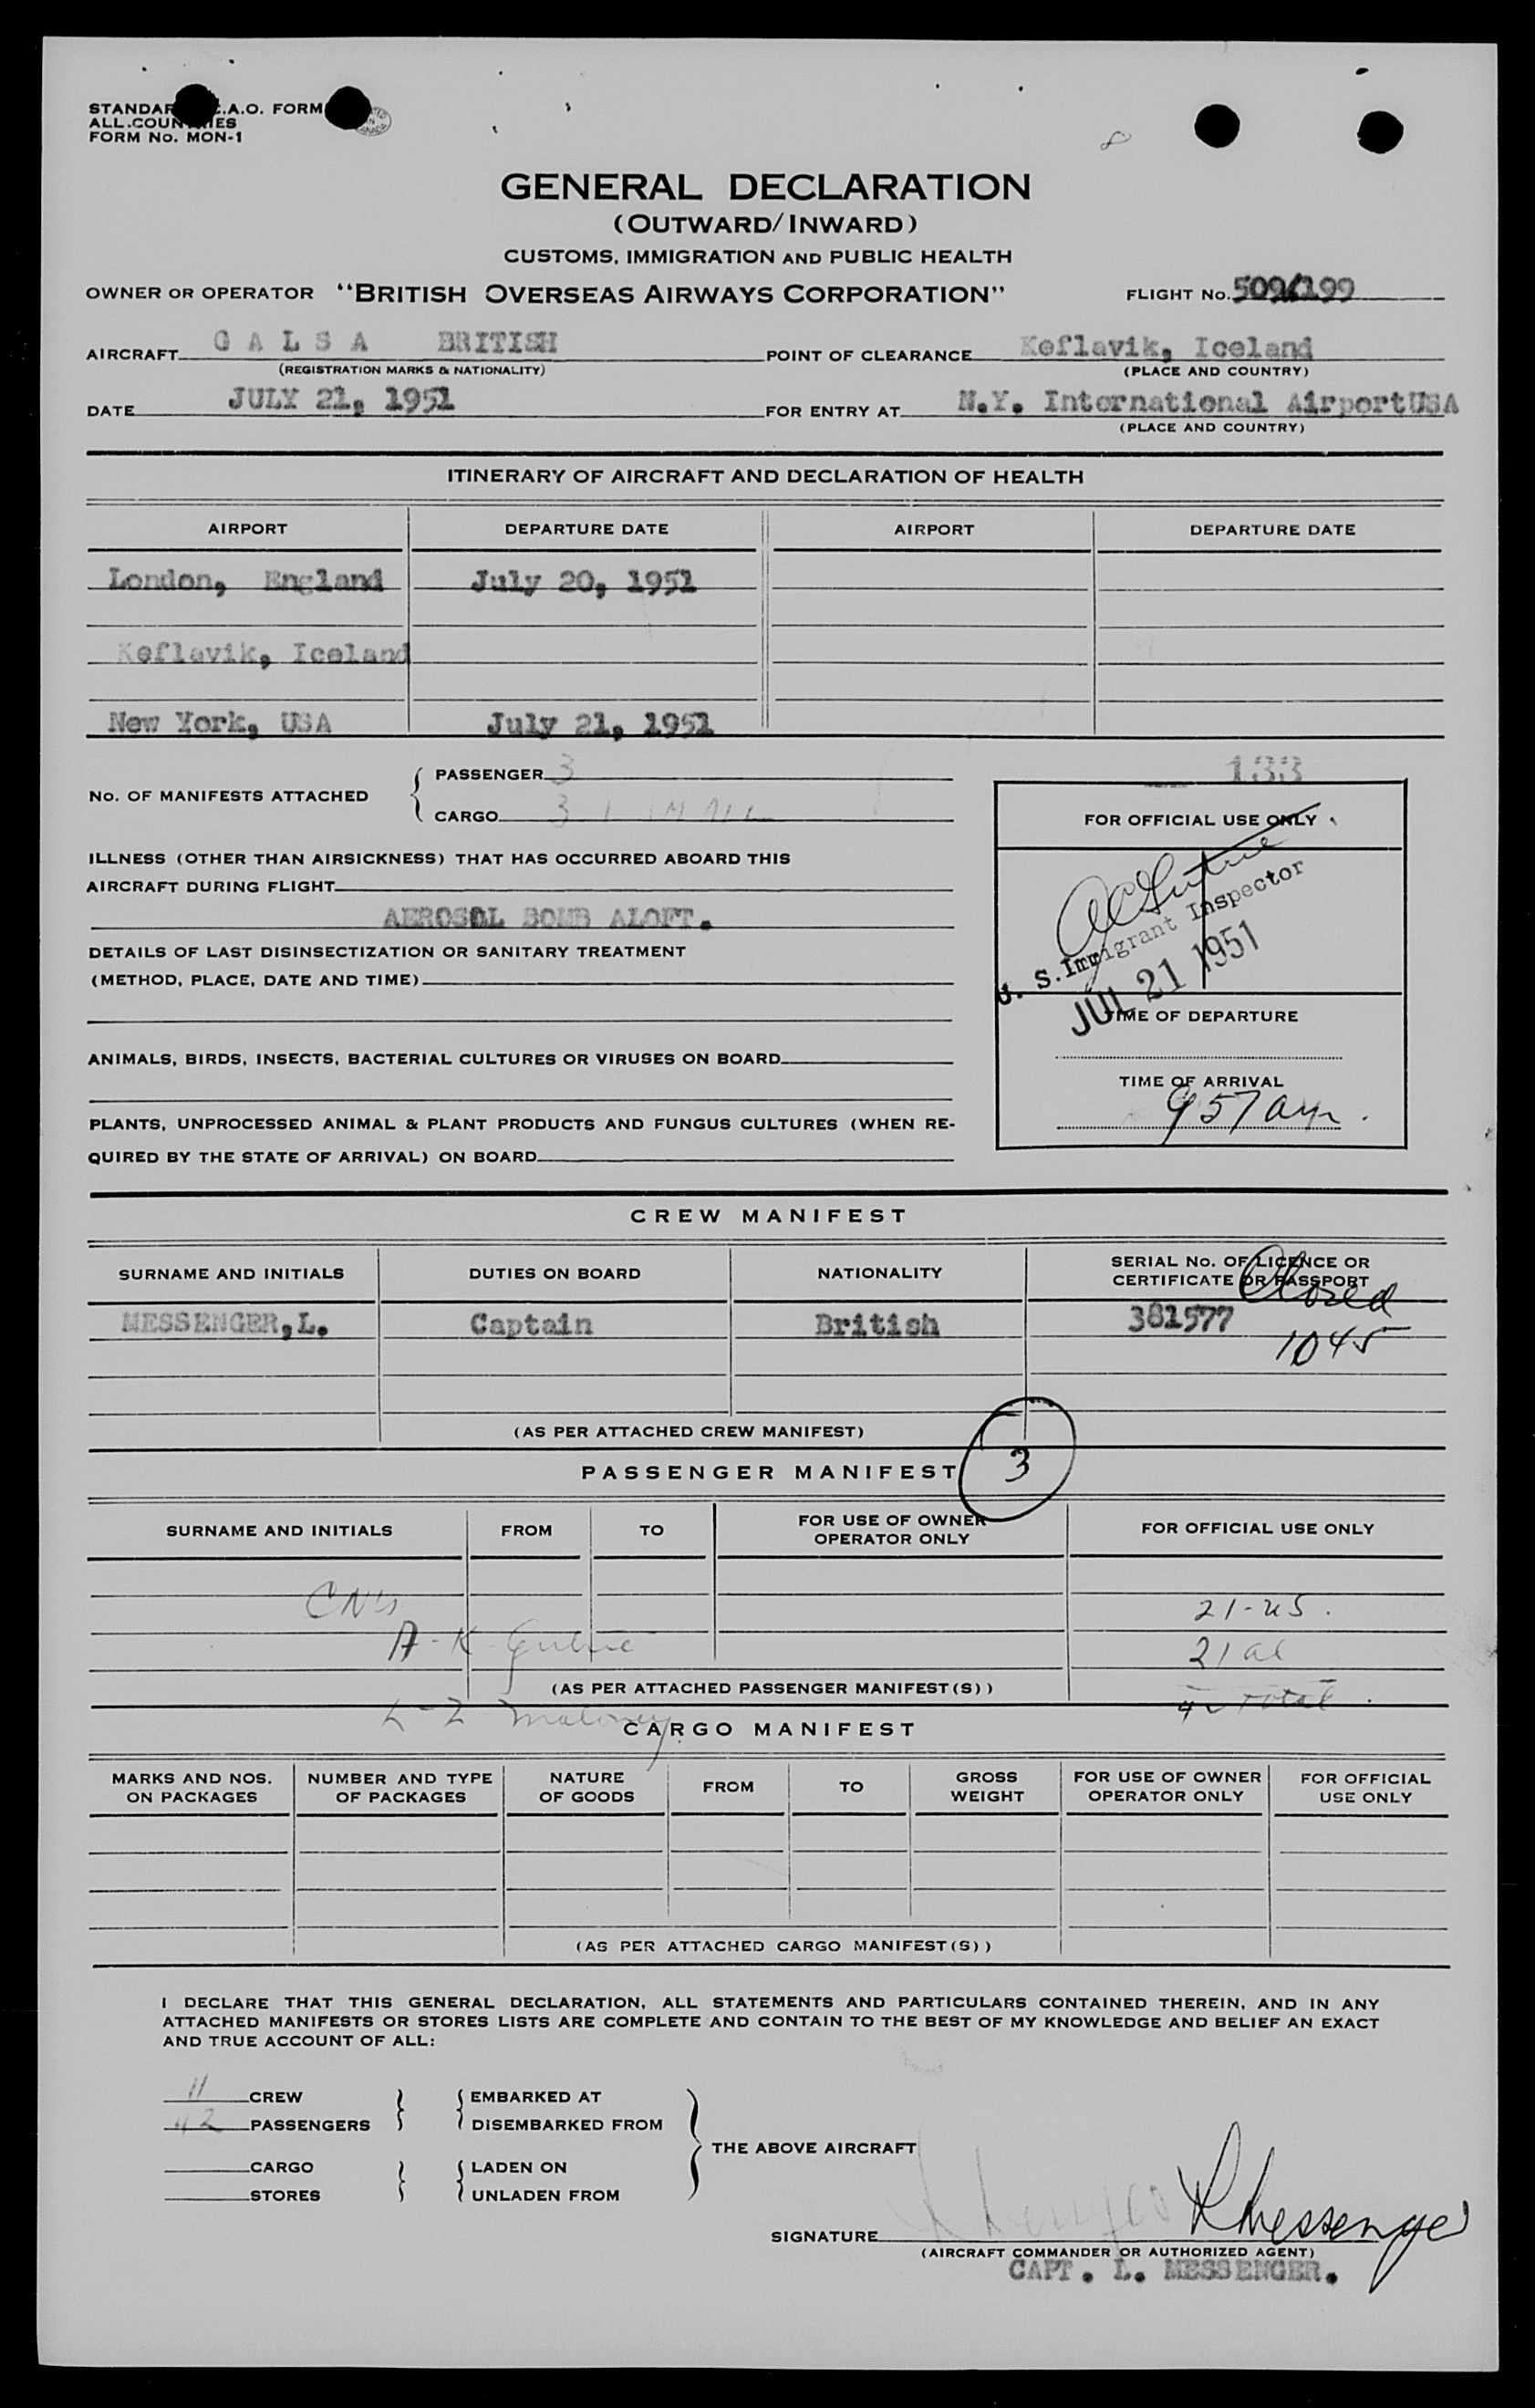 STANDAR .A.O. FORM
ALL COUN IES
FORM No. MON-1
8
GENERAL DECLARATION
(OUTWARD/INWARD)
CUSTOMS, IMMIGRATION AND PUBLIC HEALTH
OWNER OR OPERATOR "BRITISH OVERSEAS AIRWAYS CORPORATION" FLIGHT No. 509/199
AIRCRAFT G A L S A BRITISH POINT OF CLEARANCE Keflavik, Iceland
(REGISTRATION MARKS & NATIONALITY) (PLACE AND COUNTRY)
DATE JULY 21, 1951 FOR ENTRY AT N.Y. International Airport USA
(PLACE AND COUNTRY)
ITINERARY OF AIRCRAFT AND DECLARATION OF HEALTH
AIRPORT DEPARTURE DATE AIRPORT DEPARTURE DATE
London, England July 20, 1951
Keflavik, Iceland
New York, USA July 21, 1951
No. OF MANIFESTS ATTACHED
PASSENGER 3
CARGO 3
133
FOR OFFICIAL USE ONLY
U. S. Immigrant Inspector
JUL 21 1951
TIME OF DEPARTURE
TIME OF ARRIVAL
957 am.
ILLNESS (OTHER THAN AIRSICKNESS) THAT HAS OCCURRED ABOARD THIS
AIRCRAFT DURING FLIGHT
AEROSOL BOMB ALOFT.
DETAILS OF LAST DISINSECTIZATION OR SANITARY TREATMENT
(METHOD, PLACE, DATE AND TIME)
ANIMALS, BIRDS, INSECTS, BACTERIAL CULTURES OR VIRUSES ON BOARD
PLANTS, UNPROCESSED ANIMAL & PLANT PRODUCTS AND FUNGUS CULTURES (WHEN RE-
QUIRED BY THE STATE OF ARRIVAL) ON BOARD
CREW MANIFEST
SURNAME AND INITIALS DUTIES ON BOARD NATIONALITY SERIAL No. OF LICENCE OR
CERTIFICATE OR PASSPORT
Closed
MESSENGER, L. Captain British 381577
1045
(AS PER ATTACHED CREW MANIFEST)
PASSENGER MANIFEST 3
SURNAME AND INITIALS FROM TO FOR USE OF OWNER
OPERATOR ONLY FOR OFFICIAL USE ONLY
21-US.
A-K
21 al
(AS PER ATTACHED PASSENGER MANIFEST(S))
42 Total
L-Z Maloney
CARGO MANIFEST
MARKS AND NOS.
ON PACKAGES NUMBER AND TYPE
OF PACKAGES NATURE
OF GOODS FROM TO GROSS
WEIGHT FOR USE OF OWNER
OPERATOR ONLY FOR OFFICIAL
USE ONLY
(AS PER ATTACHED CARGO MANIFEST(S))
I DECLARE THAT THIS GENERAL DECLARATION, ALL STATEMENTS AND PARTICULARS CONTAINED THEREIN, AND IN ANY
ATTACHED MANIFESTS OR STORES LISTS ARE COMPLETE AND CONTAIN TO THE BEST OF MY KNOWLEDGE AND BELIEF AN EXACT
AND TRUE ACCOUNT OF ALL:
11 CREW EMBARKED AT
42 PASSENGERS DISEMBARKED FROM
THE ABOVE AIRCRAFT
CARGO LADEN ON
STORES UNLADEN FROM
SIGNATURE L Messenger
(AIRCRAFT COMMANDER OR AUTHORIZED AGENT)
CAPT. L. MESSENGER.